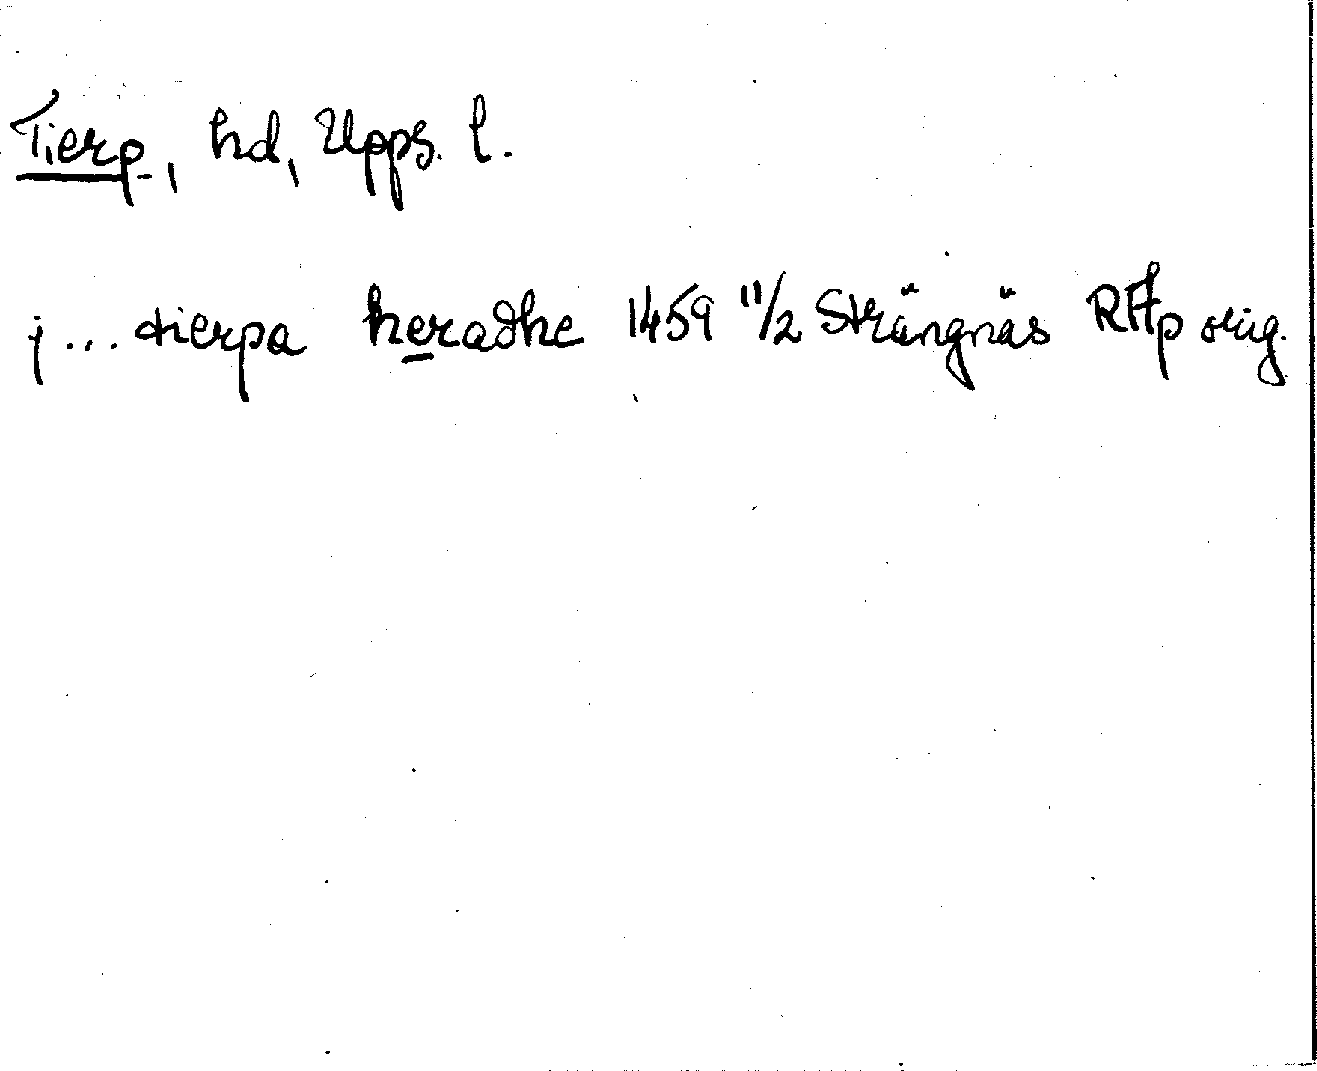 Tierp, hd, Upps. l.
j ... tierpa heradhe 1459 11/2 Strängnäs RAp orig.